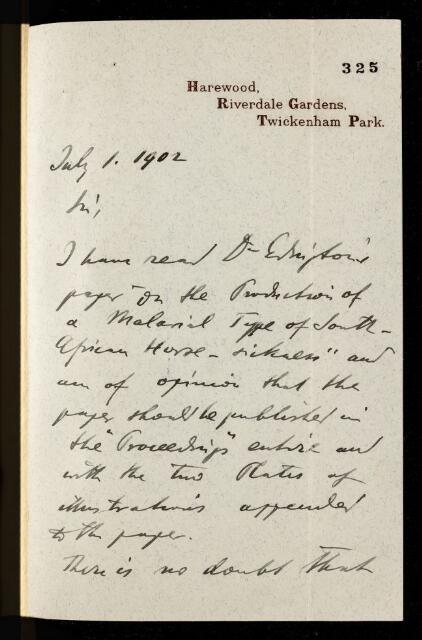 325
Harewood,
Riverdale Gardens,
Twickenham Park.
July 1. 1902
Sir,
I have read Dr Edington's
paper "on the Production of
a Malarial Type of South-
African Horse-sickness" and
am of opinion that the
paper should be published in
the "Proceedings" entire and
with the two Plates of
illustrations appended
to the paper.
There is no doubt that